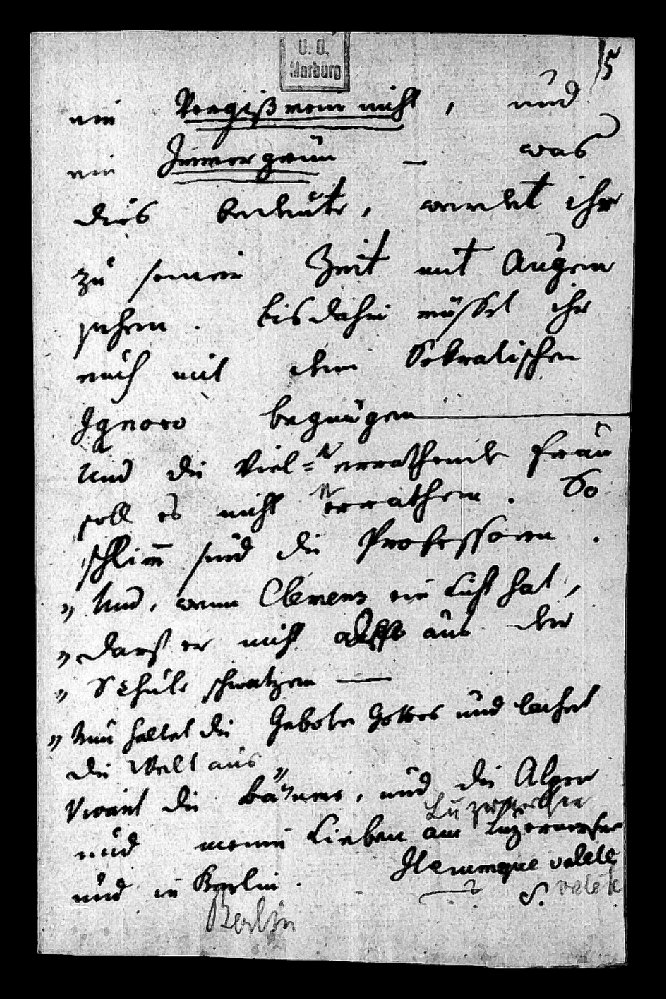 U. B.
Marburg
15
ein Vergißmein nicht, und
ein Immergrün — was
dies bedeute, werdet ihr
zu seiner Zeit mit Augen
sehen. bis dahin müsset ihr
euch mit dem Sokratischen
Ignoro begnügen
Und die Viel-errathende Frau
soll es nicht errathen. So
schlimm sind die Professoren.
„Und, wenn Clemens ein Licht hat,
„darf er nicht aus der
„Schule schwatzen —
„Nun haltet die Gebote Gottes und lachet
die Welt aus“
Vivant die und die Alpen
Luzerner
und meine Lieben am
und in Berlin. Iterumque valete
S. valete
Berlin